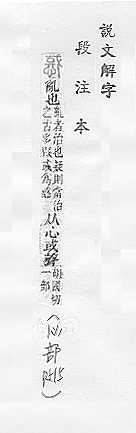 說文解字
段注本
惑
亂也亂者治也疑則當治
之古多叚或爲惑从心或聲胡國切
一部
(心部
p515)